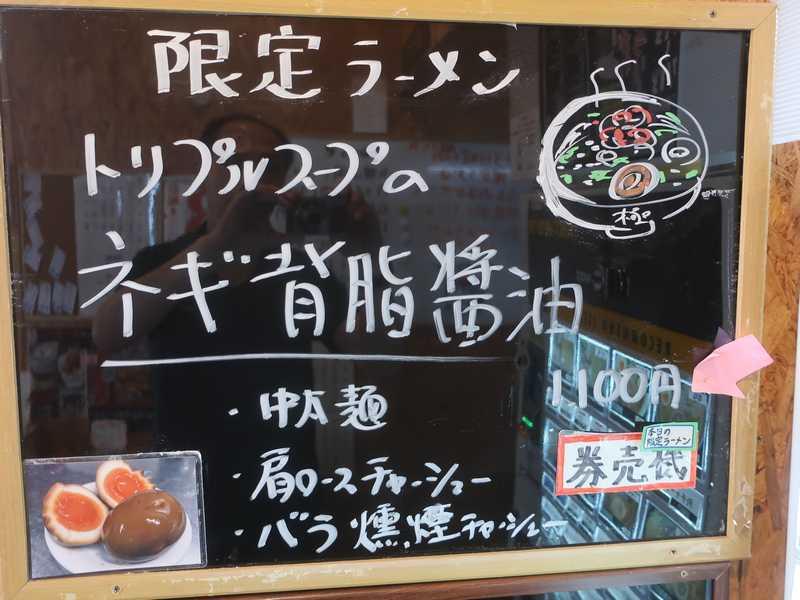 限定ラーメン
トリプルスープの
ネギ背脂醤油
極
1100円
・中太麺
・肩ロースチャーシュー
・バラ燻煙チャーシュー
本日の
限定ラーメン
券売機